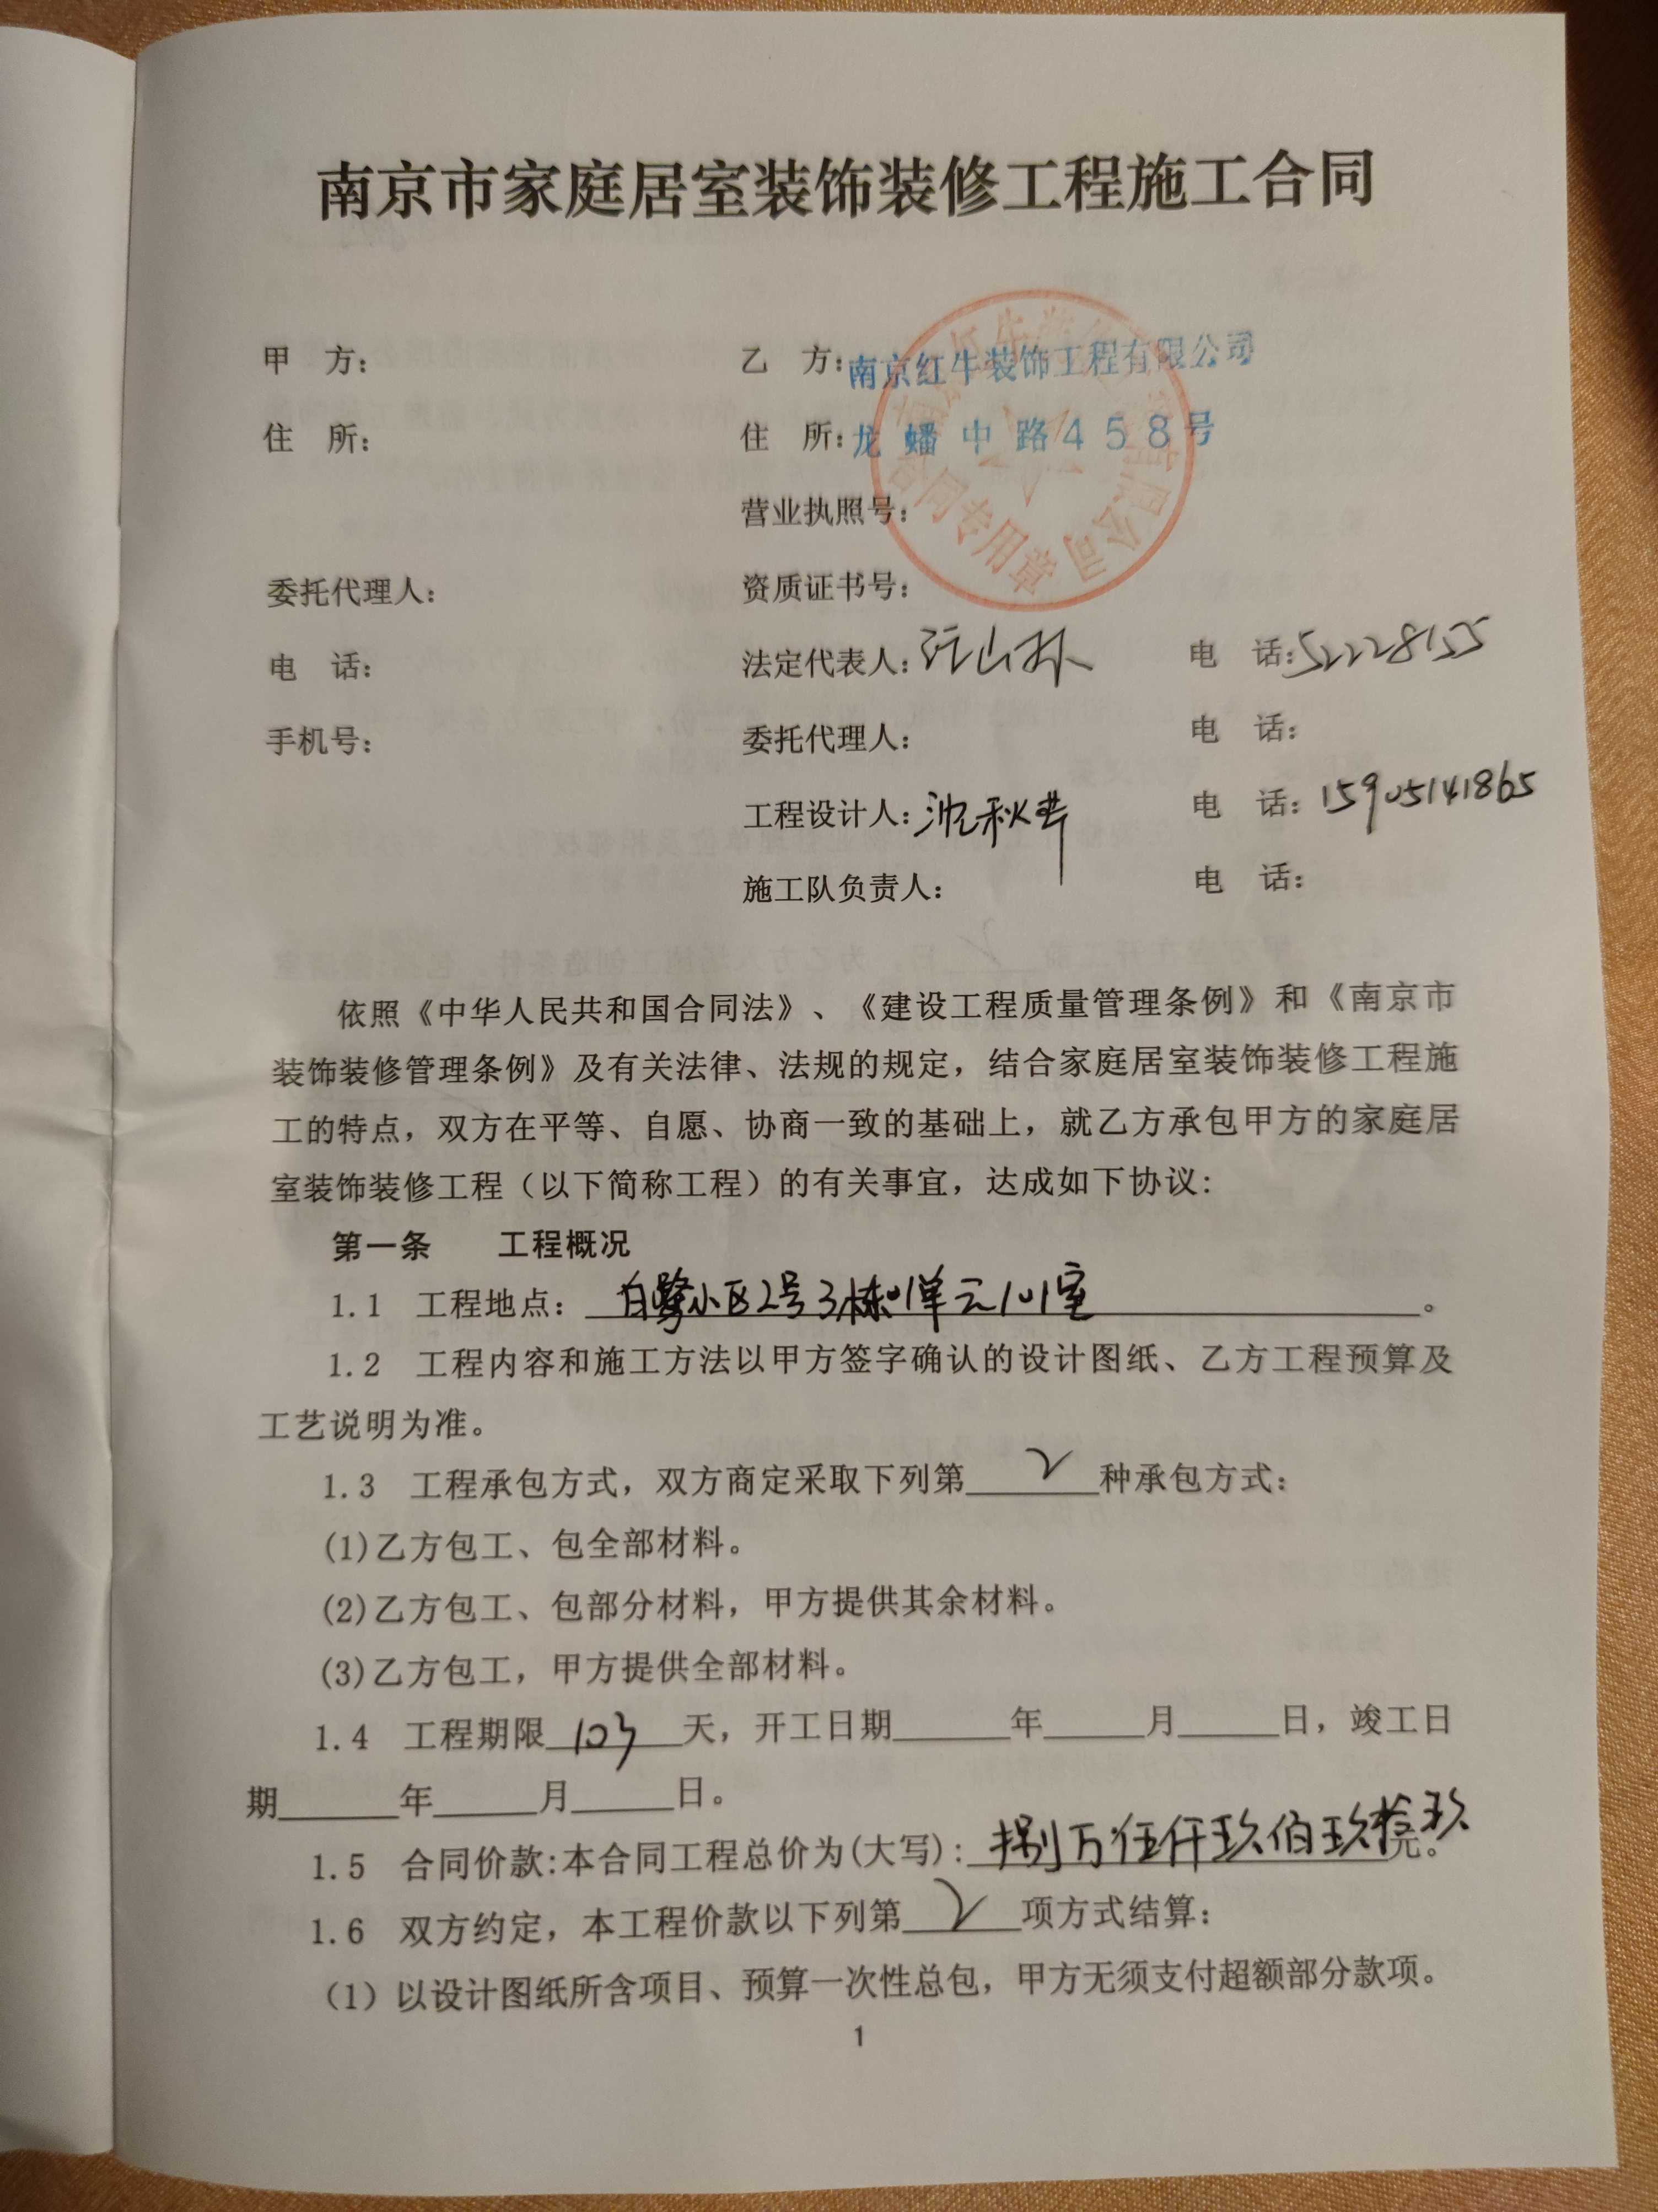 南京市家庭居室装饰装修工程施工合同
甲 方： 乙 方：南京红牛装饰工程有限公司
住 所： 住 所：龙蟠中路458号
营业执照号：
合同专用章
委托代理人： 资质证书号：
电 话： 法定代表人： 山林 电 话：52228155
手机号： 委托代理人： 电 话：
工程设计人：沈秋 电 话：15905141865
施工队负责人： 电 话：
依照《中华人民共和国合同法》、《建设工程质量管理条例》和《南京市
装饰装修管理条例》及有关法律、法规的规定，结合家庭居室装饰装修工程施
工的特点，双方在平等、自愿、协商一致的基础上，就乙方承包甲方的家庭居
室装饰装修工程（以下简称工程）的有关事宜，达成如下协议：
第一条 工程概况
1.1 工程地点：白鹭小区2号3栋01单元101室。
1.2 工程内容和施工方法以甲方签字确认的设计图纸、乙方工程预算及
工艺说明为准。
1.3 工程承包方式，双方商定采取下列第2种承包方式：
(1)乙方包工、包全部材料。
(2)乙方包工、包部分材料，甲方提供其余材料。
(3)乙方包工，甲方提供全部材料。
1.4 工程期限103天，开工日期______年_____月_____日，竣工日
期______年_____月_____日。
1.5 合同价款：本合同工程总价为(大写)：捌万伍仟玖佰玖拾玖元。
1.6 双方约定，本工程价款以下列第2项方式结算：
（1）以设计图纸所含项目、预算一次性总包，甲方无须支付超额部分款项。
1